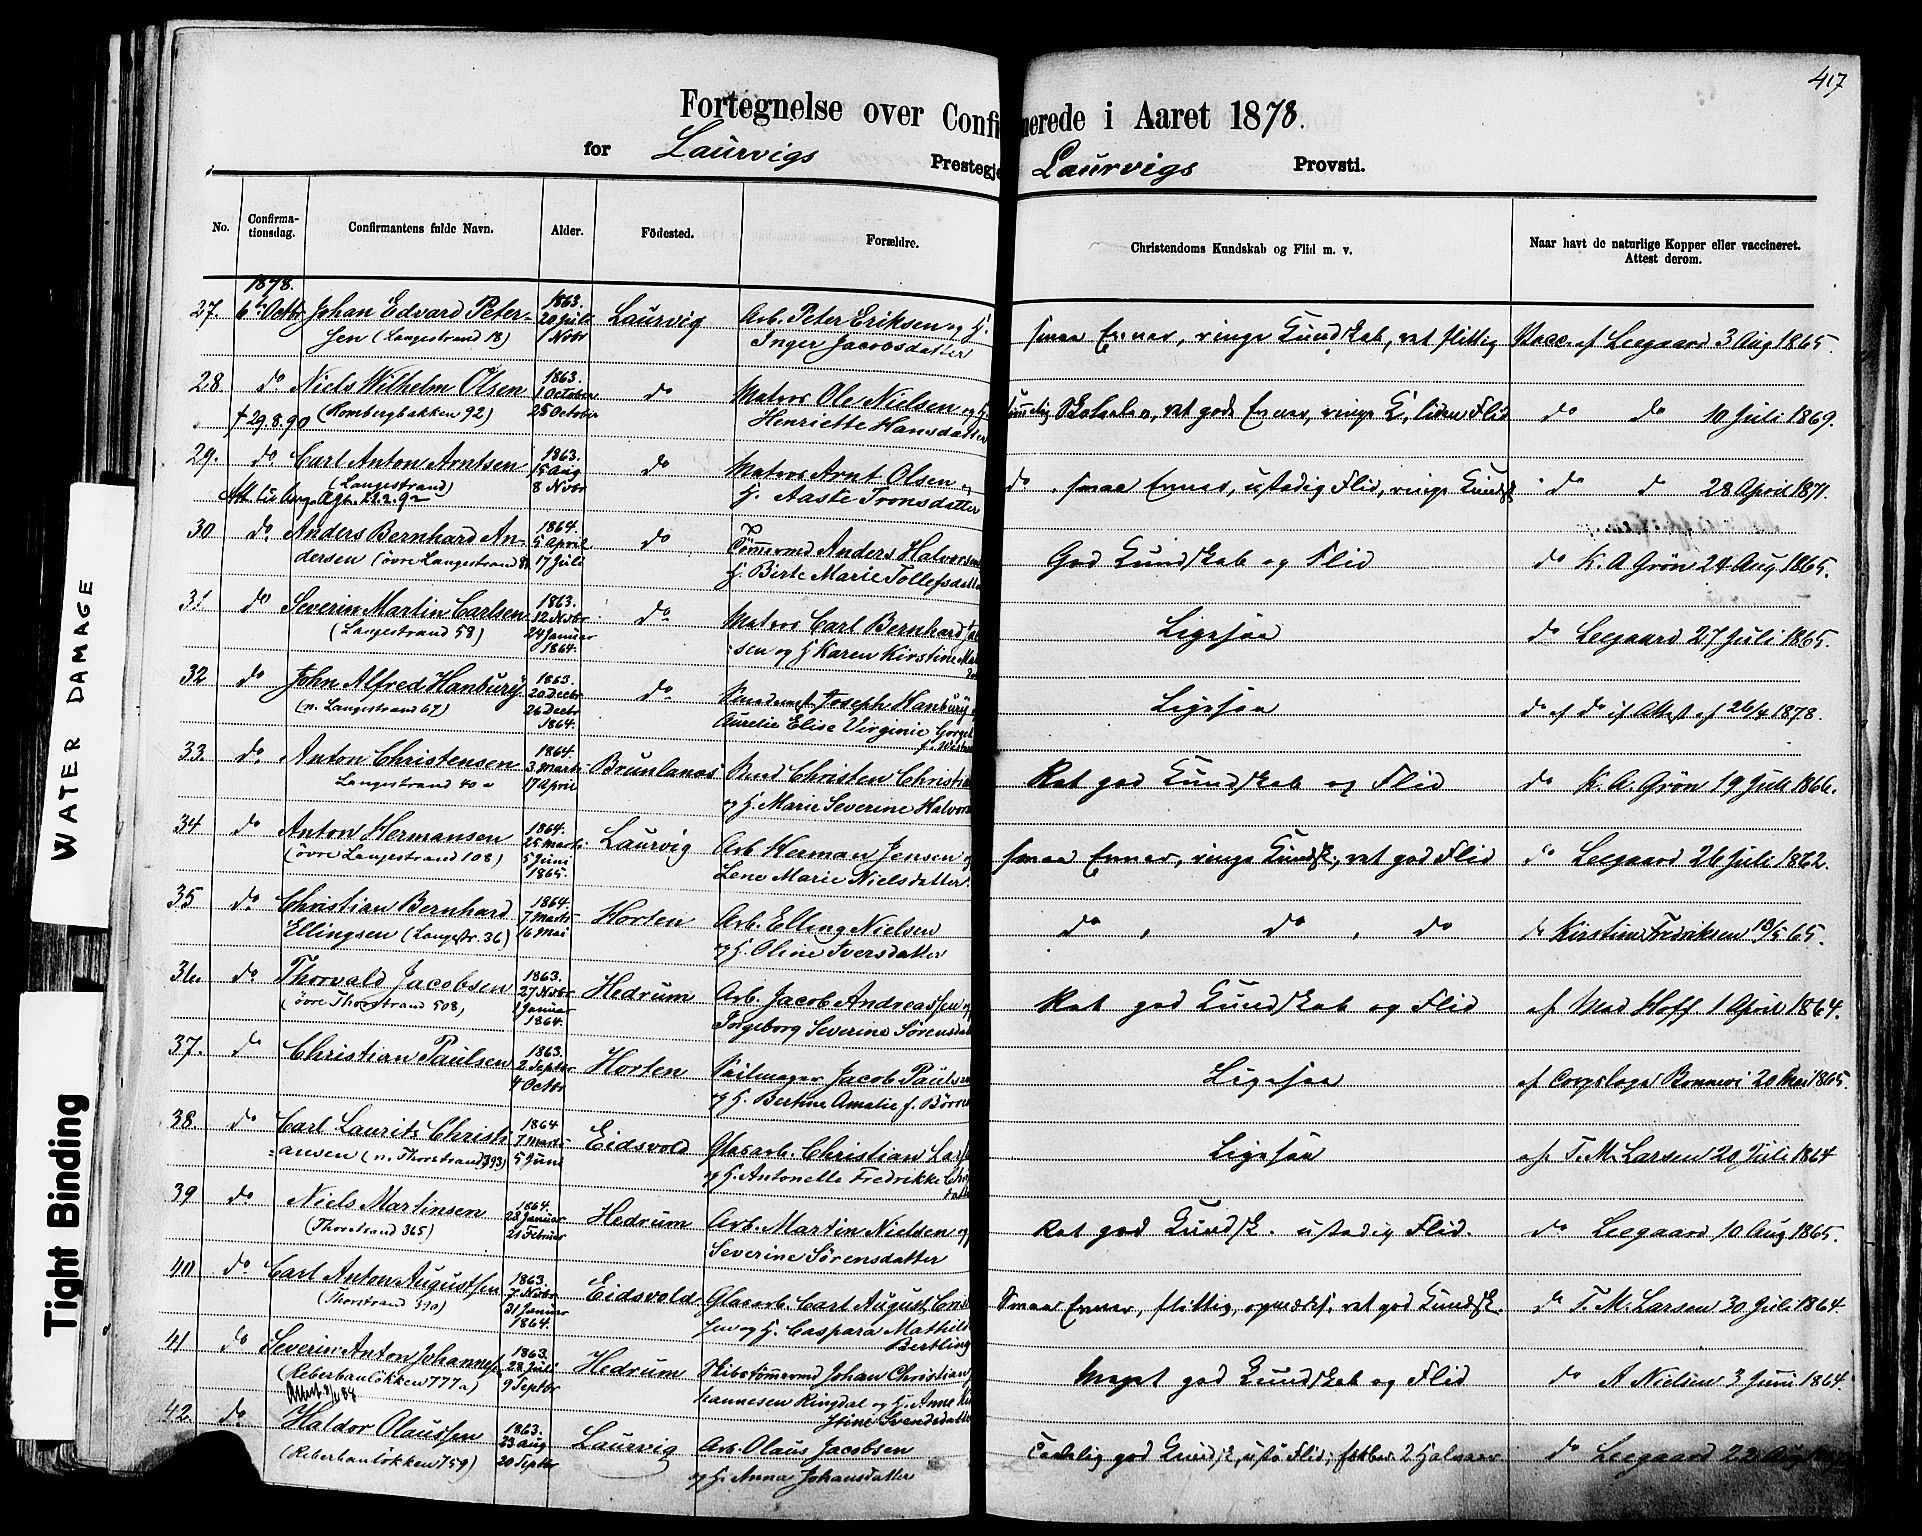 417
Fortegnelse over Confi nerede i Aaret 1878.
for Laurvigs Prestegje Laurvigs Provsti.
No. Confirma-tionsdag. Confirmantens fulde Navn. Alder. Födested. Forældre. Christendoms Kundskab og Flid m. v. Naar havt de naturlige Kopper eller vaccineret. Attest derom.
1878.
27. 6te Octbr Johan Edvard Peter- 1863. 20 Juli Laurvig Arb. Peter Eriksen og H. smaa Evner, ringe Kundskab, ret flittig Vacc. af Leegaard 3 Aug 1865.
sen (Langestrand 18) 1 Novbr Inger Jacobsdatter
28. do Niels Wilhelm Olsen 1863. 1 October do Matros Ole Nielsen og H. ret gode Evner, ringe K, liden Flid do do 10 Juli 1869.
† 29.8.90 (Rombergbakken 92) 25 October Henriette Hansdatter
29. do Carl Anton Arntsen 1863. 15 Aug do Matros Arnt Olsen og do. smaa Evner, ustadig Flid, ringe Kundsk do do 28 April 1871.
(Langestrand) 8 Novbr H. Aaste Tronsdatter
30 do Anders Bernhard An- 1864. 5 April do Tömmermd Anders Halvorsen God Kundskab og Flid do K. A Grön 24 Aug 1865.
dersen (övre Langestrand 8 17 Juli H. Birte Marie Tollefsdatte
31 do Severin Martin Carlsen 1863. 12 Novbr do Matros Carl Bernhard Ligesaa do Leegaard 27 Juli 1865.
(Langestrand 58) 24 Januar 1864. sen og H Karen Kirstine
32 do John Alfred Hanbury 1863. 20 Decbr do Joseph Hanbury Ligesaa do af do if Attest af 26/4 1878.
(n. Langestrand 67) 26 Decbr 1864. Aurelie Elise Virginie
33. do Anton Christensen 1864. 3 Marts Brunlanes Christen Christi Ret god Kundskab og Flid do K. A. Grön 19 Juli 1866.
Langestrand 40 a 17 April og H. Marie Severine Halvor
34 do Anton Hermansen 1864. 25 Marts Laurvig Arb Herman Jensen og smaa Evner, ringe Kundsk, ret god Flid do Leegaard 26 Juli 1862.
(övre Langestrand 108) 5 Juni 1865 Lene Marie Nielsdatter.
35 do Christian Bernhard 1864. 7 Marts Horten Arb. Elling Nielsen do, do, do do Kirstine Fredriksen 18/5 65.
Ellingsen (Langestr. 36) 16 Mai og H. Oline Iversdatter
36. do Thorvald Jacobsen 1863. 27 Novbr Hedrum Arb. Jacob Andreassen og Ret god Kundskab og Flid af Mad Hoff 1 April 1864.
(övre Thorstrand 508) 1 Januar 1864. Torgeborg Severine Sörensda
37. do Christian Paulsen 1863. 2 Septbr Horten Seilmager Jacob Paulsen Ligesaa af Corpslæge Bonnevi 20 Mai 1865.
4 Octbr og H. Bertine Amalie f. Börre
38. do Carl Laurits Christi- 1864 7 Marts Eidsvold Glasarb. Christian Lars Ligesaa af T. M. Larsen 20 Juli 1864
ansen (n. Thorstrand 393) 5 Juni og H. Antonette Fredrikke
39 do Niels Martinsen 1864. 28 Januar Hedrum Arb. Martin Nielsen og Ret god Kundsk. ustadig Flid. do Leegaard 10 Aug 1865.
(Thorstrand 365) 21 Februar Severine Sörensdatter
40. do Carl Anton Augustsen 1863. 7 Novbr Eidsvold Glasarb. Carl August Smaa Evner, flittig, opmærks. ret god Kundsk. do T. M. Larsen 30 Juli 1864.
(Thorstrand 390) 31 Januar 1864. sen og H. Caspara Mathild
Bertling
41 do Severin Anton Johannes 1863. 28 Juli Hedrum Skibstömmermd Johan Christian Meget god Kundskab og Flid do A Nielsen 3 Juni 1864.
(Reberbanlökken 777 a) 9 Septbr hannesen Ringdal og H. Anne
stine Svendsdatte
42 do Haldor Olaussen 1863. 23 Aug Laurvig Arb. Olaus Jacobsen Temmelig god Kundsk, Flid; do Leegaard 22 Aug
(Reberbanlökken 759) 20 Septbr og H. Anna Johansdatter
WATER DAMAGE
Tight Binding